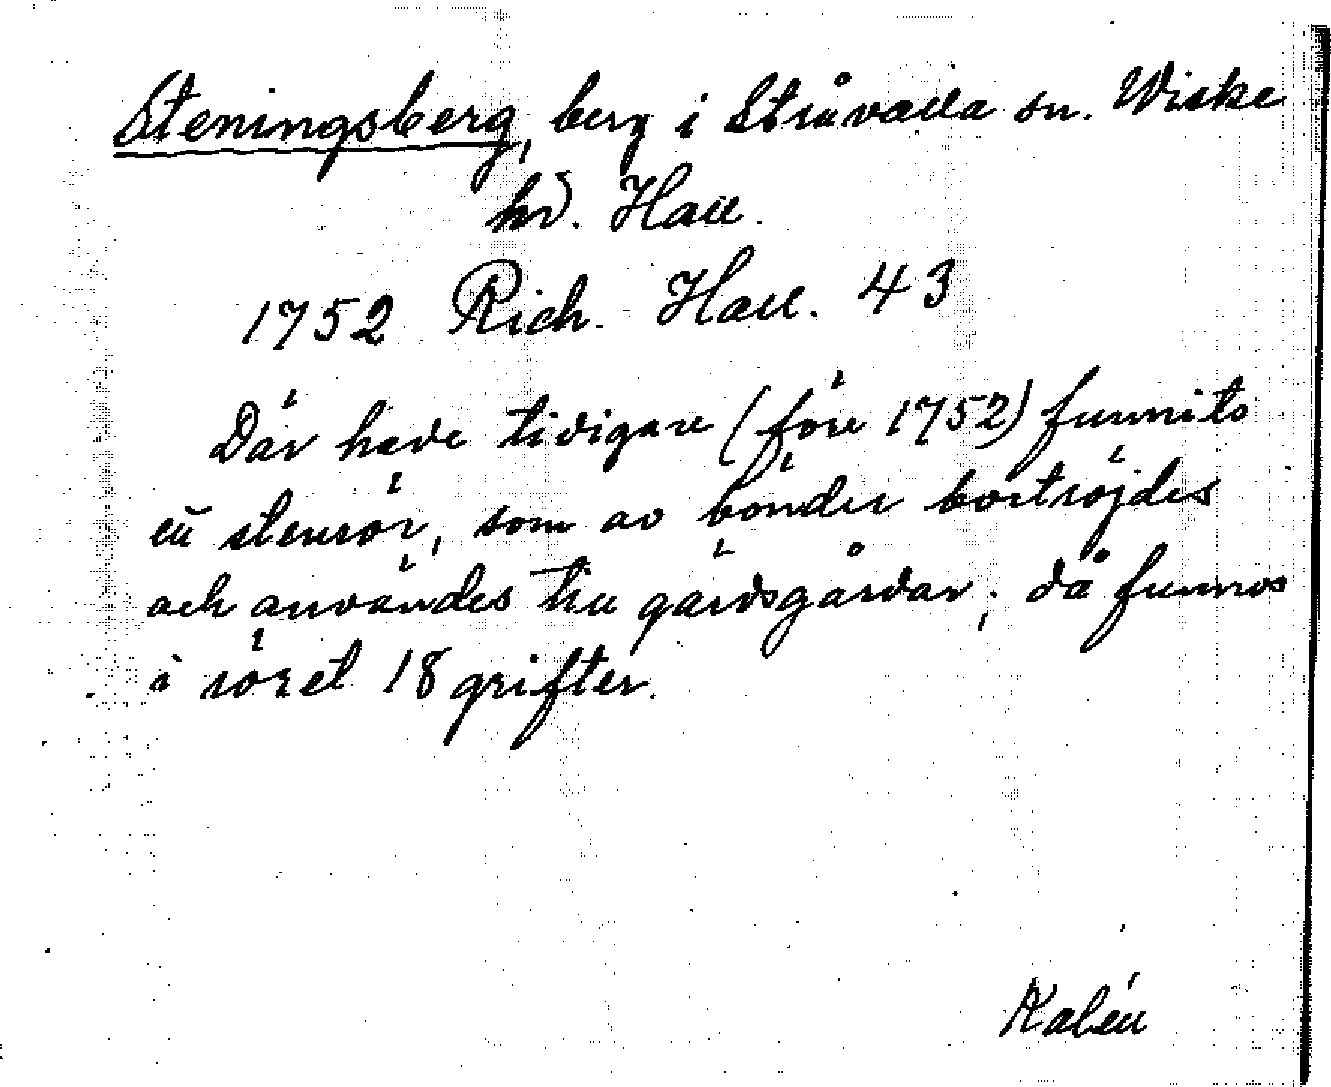 Steningsberg, berg i Stråvalla sn. Wiske
hd. Hall.
1752 Rich. Hall. 43
Där hade tidigare (före 1752) funnits
ett stenrör, som av bönder bortröjdes
och användes till gärdsgårdar; då funnos
i röret 18 grifter.
Kalén